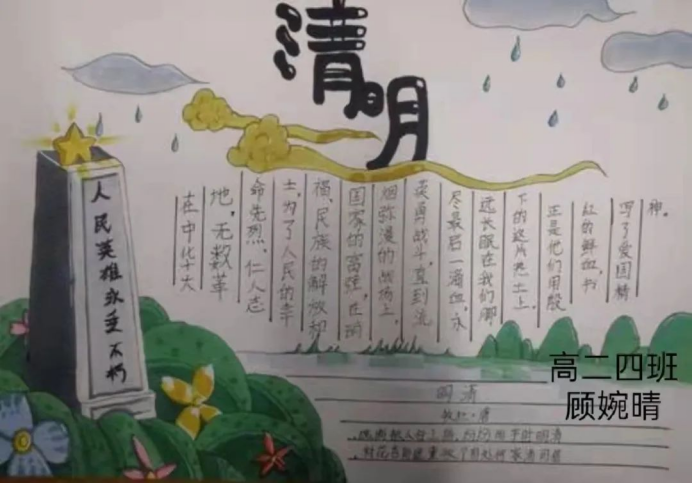 清明
人民英雄永垂不朽
在中华大
地，无数革
命先烈、仁人志
士，为了人民的幸
福、民族的解放和
国家的富强，在硝
烟弥漫的战场上，
英勇战斗，直到流
尽最后一滴血，永
远长眠在我们脚
下的这片热土上
正是他们用殷
红的鲜血，书
写了爱国精
神。
高二四班
顾婉晴
明清
魂断欲人行上路，纷纷雨节时明清